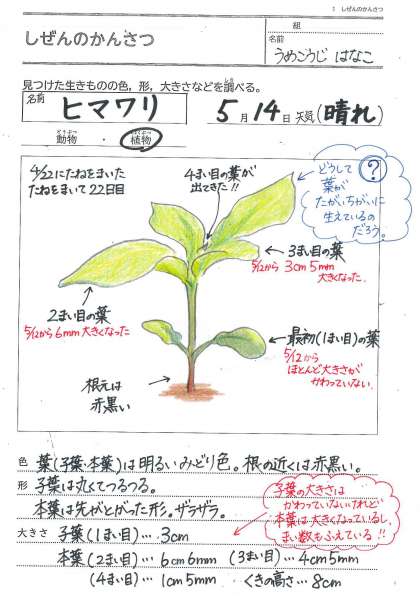 1 しぜんのかんさつ
しぜんのかんさつ
組
名前
うめこうじ はなこ
見つけた生きものの色，形，大きさなどを調べる。
名前 ヒマワリ
5月14日 天気(晴れ)
動物 ・ 植物
4/22にたねをまいた
たねをまいて22日目
4まい目の葉が
出てきた!!
?
どうして
葉が
たがいちがいに
生えているの
だろう。
3まい目の葉
5/12から 3cm5mm
大きくなった。
2まい目の葉
5/12から6mm大きくなった
最初(1まい目)の葉
5/12から
ほとんど大きさが
かわっていない。
根元は
赤黒い
色 葉(子葉・本葉)は明るいみどり色。根の近くは赤黒い。
形 子葉は丸くてつるつる。
本葉は先がとがった形。ザラザラ。
子葉の大きさは
かわっていないけれど
本葉は大きくなっているし、
まい数もふえている!!
大きさ 子葉(1まい目)…3cm
本葉(2まい目)…6cm6mm (3まい目)…4cm5mm
(4まい目)…1cm5mm くきの高さ…8cm